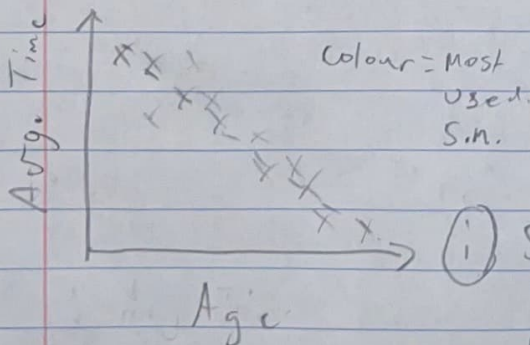 Avg. Time
Colour = Most
used
S.m.
i
S
Age